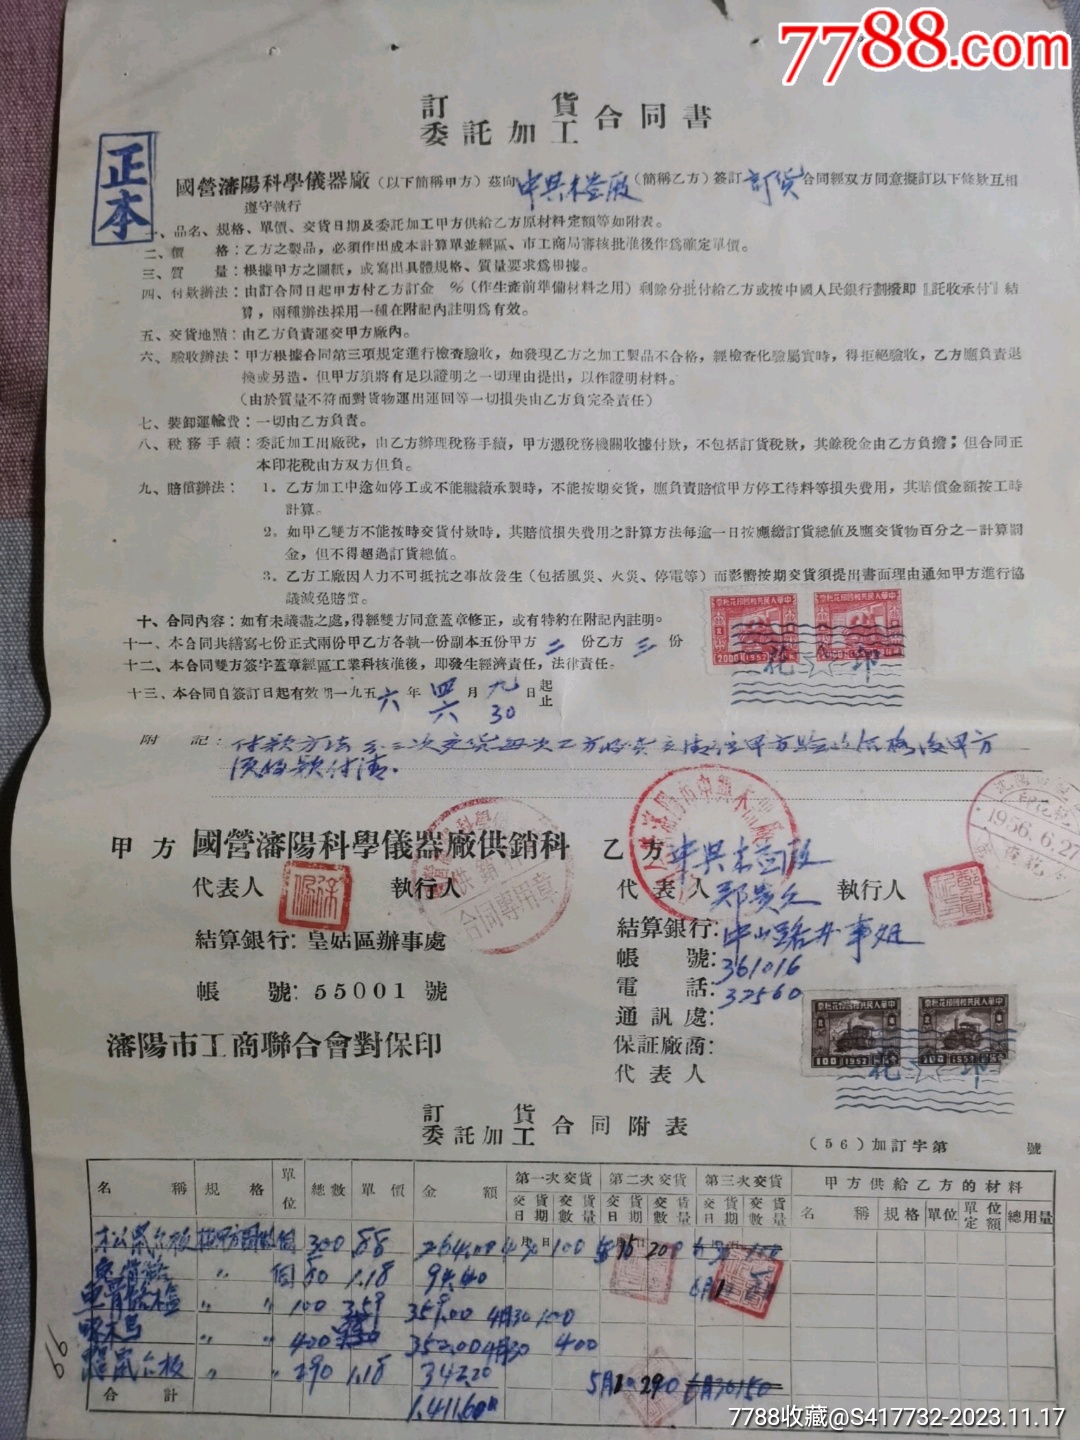 7788.com
訂貨
委託加工合同書
正本
國營瀋陽科學儀器廠（以下簡稱甲方）茲向中興木堂廠（簡稱乙方）簽訂訂貨合同經双方同意擬訂以下條欵互相
遵守執行
一、品名、規格、單價、交貨日期及委託加工甲方供給乙方原材料定額等如附表。
二、價　　格：乙方之製品，必須作出成本計算單並經區、市工商局審核批准後作爲確定單價。
三、質　　量：根據甲方之圖紙，或寫出具體規格、質量要求爲根據。
四、付欵辦法：由訂合同日起甲方付乙方訂金　%（作生產前準備材料之用）剩餘分批付給乙方或按中國人民銀行劃撥即『託收承付』結
算，兩種辦法採用一種在附記內註明爲有效。
五、交貨地點：由乙方負責運交甲方廠內。
六、驗收辦法：甲方根據合同第三項規定進行檢查驗收，如發現乙方之加工製品不合格，經檢查化驗屬實時，得拒絕驗收，乙方應負責退
換或另造．但甲方須將有足以證明之一切理由提出，以作證明材料。
（由於質量不符而對貨物運出運回等一切損失由乙方負完全責任）
七、裝卸運輸費：一切由乙方負責。
八、稅務手續：委託加工出廠稅，由乙方辦理稅務手續，甲方憑稅務機關收據付欵，不包括訂貨稅欵，其餘稅金由乙方負擔；但合同正
本印花稅由方双方但負。
九、賠償辦法：1．乙方加工中途如停工或不能繼續承製時，不能按期交貨，應負責賠償甲方停工待料等損失費用，其賠償金額按工時
計算。
2．如甲乙雙方不能按時交貨付欵時，其賠償損失費用之計算方法每逾一日按應繳訂貨總值及應交貨物百分之一計算罰
金，但不得超過訂貨總値。
3．乙方工廠因人力不可抵抗之事故發生（包括風災、火災、停電等）而影響按期交貨須提出書面理由通知甲方進行協
議減免賠償。
十、合同內容：如有未議盡之處，得經雙方同意蓋章修正，或有特約在附記內註明。
十一、本合同共繕寫七份正式兩份甲乙方各執一份副本五份甲方二份乙方三份
十二、本合同雙方簽字蓋章經區工業科核准後，即發生經濟責任，法律責任。
十三、本合同自簽訂日起有效期一九五六年四月九日起
六 30 止
中華人民共和國印花稅票
2000 1952
花 ☆ 印
附　記：付款方法分三次交貨每次乙方
甲方　國營瀋陽科學儀器廠供銷科　乙方
代表人　執行人　代表人　鄭贵久　執行人
合同專用章
1956.6.27
結算銀行：皇姑區辦事處　結算銀行：中山路办事処
帳　號：361016
帳　號：55001 號　電　話：32560
通訊處：
瀋陽市工商聯合會對保印　保証廠商：
代表人
中華人民共和國印花稅票
100 1952
花 ☆ 印
訂貨
委託加工合同附表
（56）加訂字第　　號
名稱　規格　單位　總數　單價　金額　第一次交貨　第二次交貨　第三次交貨　甲方供給乙方的材料
交貨日期　交貨數量　交貨日期　交貨數量　交貨日期　交貨數量　名稱　規格　單位　單位定額　總用量
松鼠台板　按甲方圖紙　個　300　.88　264.00　4月30日　100　5月15　200
〃　個　80　1.18　94.40
〃　〃　100　3.59　359.00　4月30　100
啄木鸟　〃　〃　400　352.00　4月30　400
台板　〃　〃　290　1.18　342.20　5月20　290　6月30　150
合計　1,411.60
7788收藏@S417732-2023.11.17